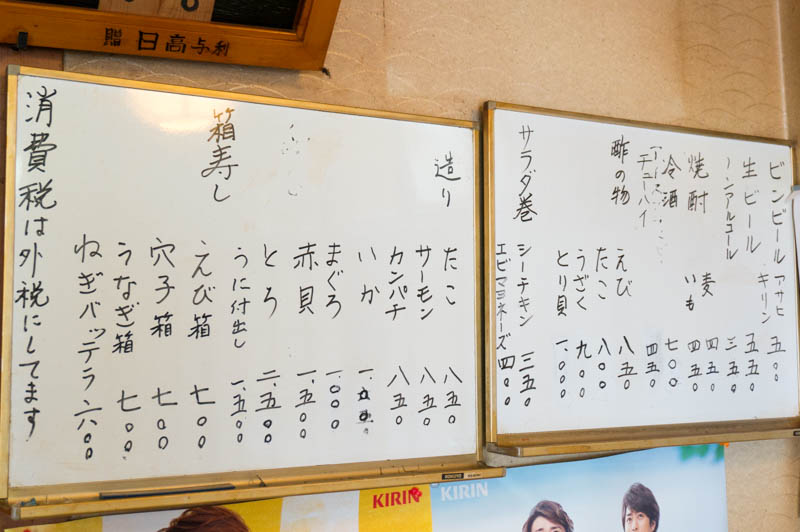 贈 日高与利
ビンビール アサヒ 五〇〇
キリン
生ビール 五五〇
ノンアルコール 三五〇
焼酎 麦 四五〇
いも 四五〇
冷酒 七〇〇
チューハイ 四五〇
酢の物 えび 八五〇
たこ 八〇〇
うざく 九〇〇
とり貝 一、〇〇〇
サラダ巻 シーチキン 三五〇
エビマヨネーズ 四〇〇
造り たこ 八五〇
サーモン 八五〇
カンパチ 八五〇
いか
まぐろ 一、〇〇〇
赤貝 一、五〇〇
とろ 二、五〇〇
うに付出し 一、五〇〇
箱寿し えび箱 七〇〇
穴子箱 七〇〇
うなぎ箱 七〇〇
ねぎバッテラ 六〇〇
消費税は外税にしてます
KIRIN
KIRIN